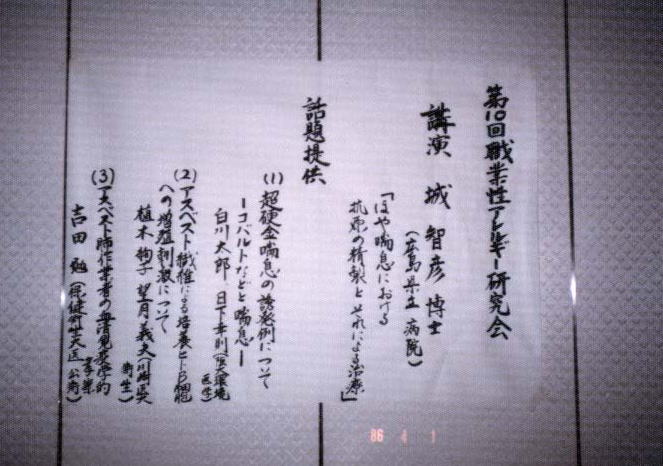 第10回職業性アレルギー研究会
講演 城 智彦 博士
(広島県立 病院)
「ほや喘息における
抗原の精製とそれによる治療」
話題提供
(1) 超硬合金喘息の誘発例について
ーコバルトなどと喘息ー
白川太郎、日下幸則(阪大環境
医学)
(2) アスベスト繊維による培養ヒトB細胞
への増殖刺激について
植木絢子 望月義夫(川崎医大
衛生)
(3) アスベスト肺作業者の血清免疫学的
吉田 勉(保健衛生大医 公衛)
86 4 1